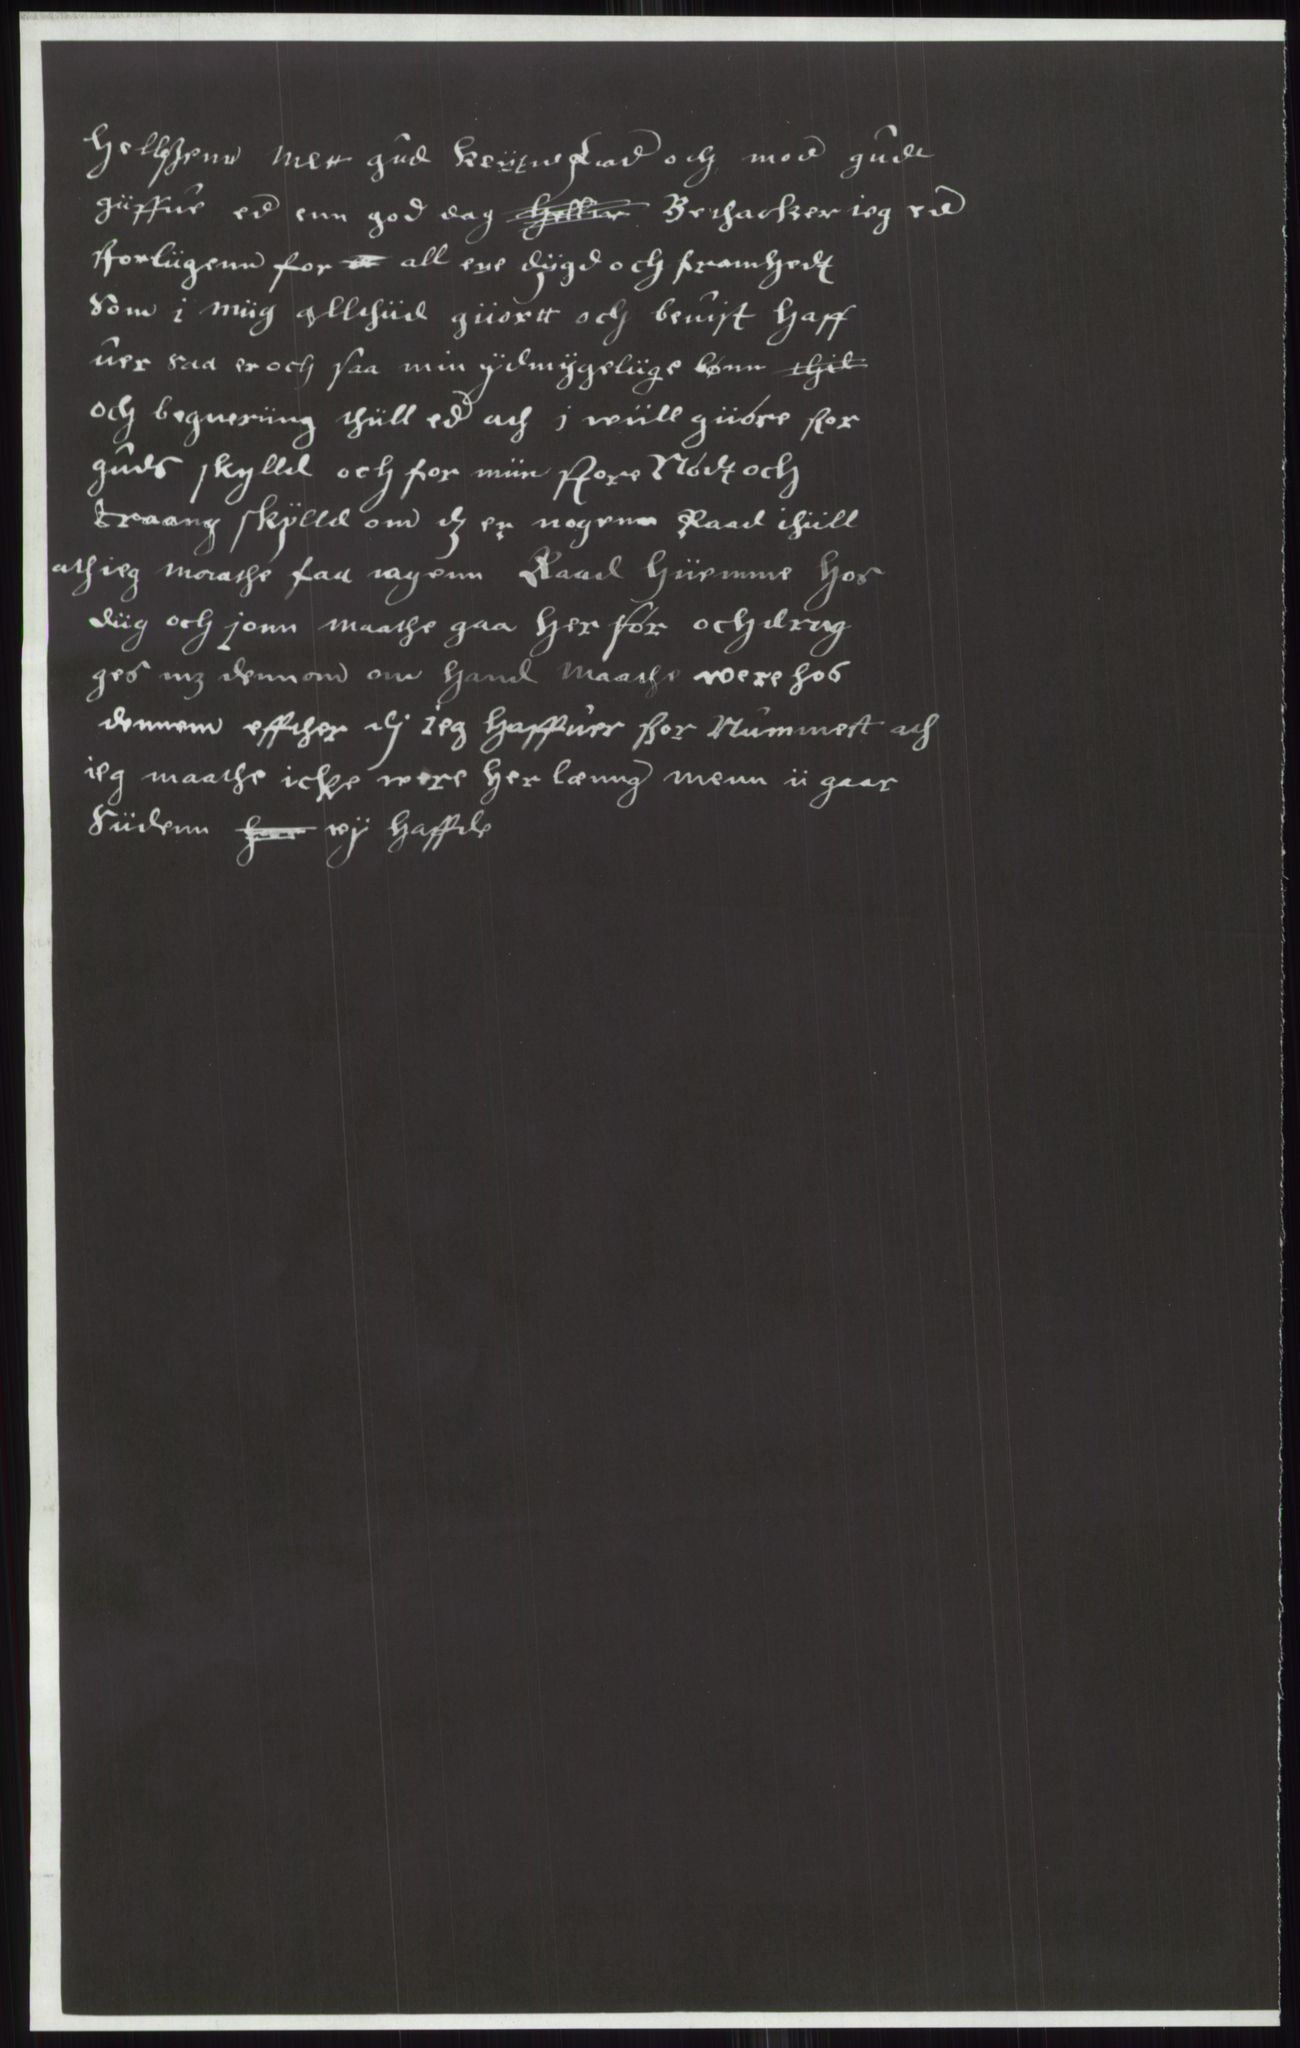 Hellszenn mett gud keüzne Raad och mod gudt
güffue ed enn god dag Hellür Bethacker ieg ed
storlügenn for all ere dÿgd och fromhedt
som i müg allthüd güortt och beuist Haff
uer saa er och saa min ÿdmÿgelüge bønn thil
och begnerüng thüll ed ath i wüll güøre for
guds skylld och for müin store Nødt och
traang skÿlld om dz er nogenn Raad thüll
ath ieg maathe faa nogenn Raad Hüemme Hos
düg och jonn maathe gaa Her for och drag
ges mz dennom om Hand Maathe were hos
dennem effther dj ieg Haffuer for Nummett ath
ieg maathe icke were Her lænng menn ü gaar
Südenn wÿ Haffde